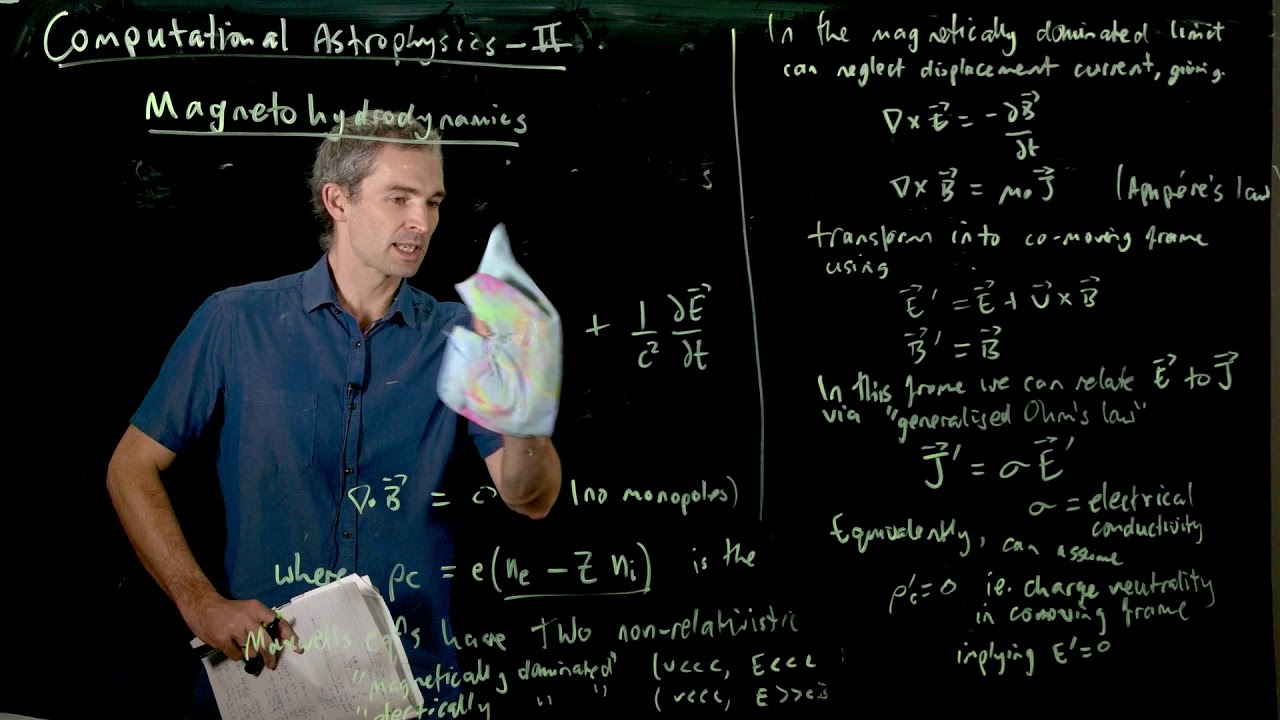 Computational Astrophysics - II
Magnetohydrodynamics
+ 1/c² ∂E⃗/∂t
∇·B⃗ = 0 (no monopoles)
where ρc = e(ne − Z ni) is the
Maxwells eqns have two non-relativistic
"magnetically dominated" (v<<c, E<<c
"electrically " " (v<<c, E>>cB
In the magnetically dominated limit
can neglect displacement current, giving.
∇×E⃗ = −∂B⃗/∂t
∇×B⃗ = μ₀J⃗ (Ampére's law
transform into co-moving frame
using
E⃗' = E⃗ + v⃗×B⃗
B⃗' = B⃗
In this frame we can relate E⃗ to J⃗
via "generalised Ohm's law"
J⃗' = σE⃗'
σ = electrical
conductivity
Equivalently, can assume
ρc' = 0 i.e. charge neutrality
in comoving frame
implying E' = 0